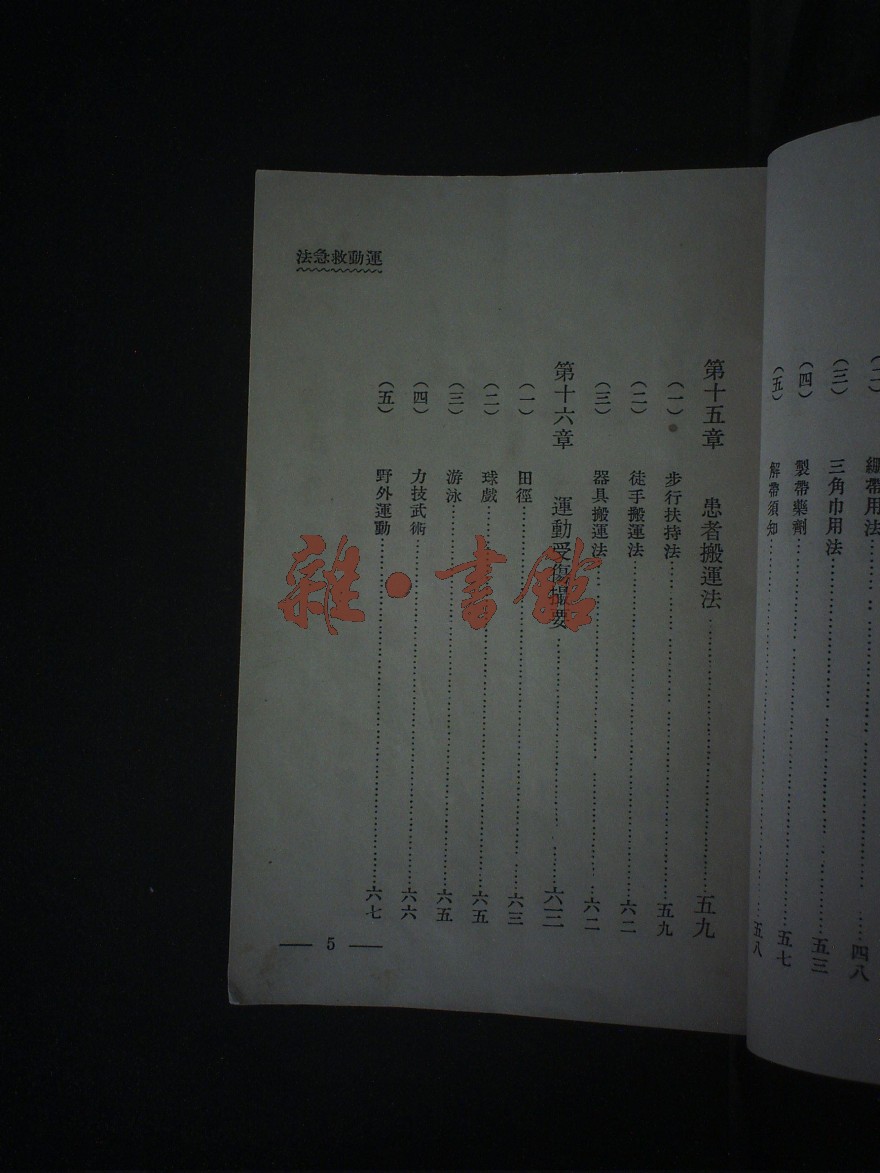 (二) 繃帶用法……四八
(三) 三角巾用法……五三
(四) 製帶藥劑……五七
(五) 解帶須知……五八
運動救急法
第十五章 患者搬運法……五九
(一) 步行扶持法……五九
(二) 徒手搬運法……六二
(三) 器具搬運法……六二
第十六章 運動受傷撮要……六三
(一) 田徑……六三
(二) 球戲……六五
(三) 游泳……六五
(四) 力技武術……六六
(五) 野外運動……六七
— 5 —
雜·書館